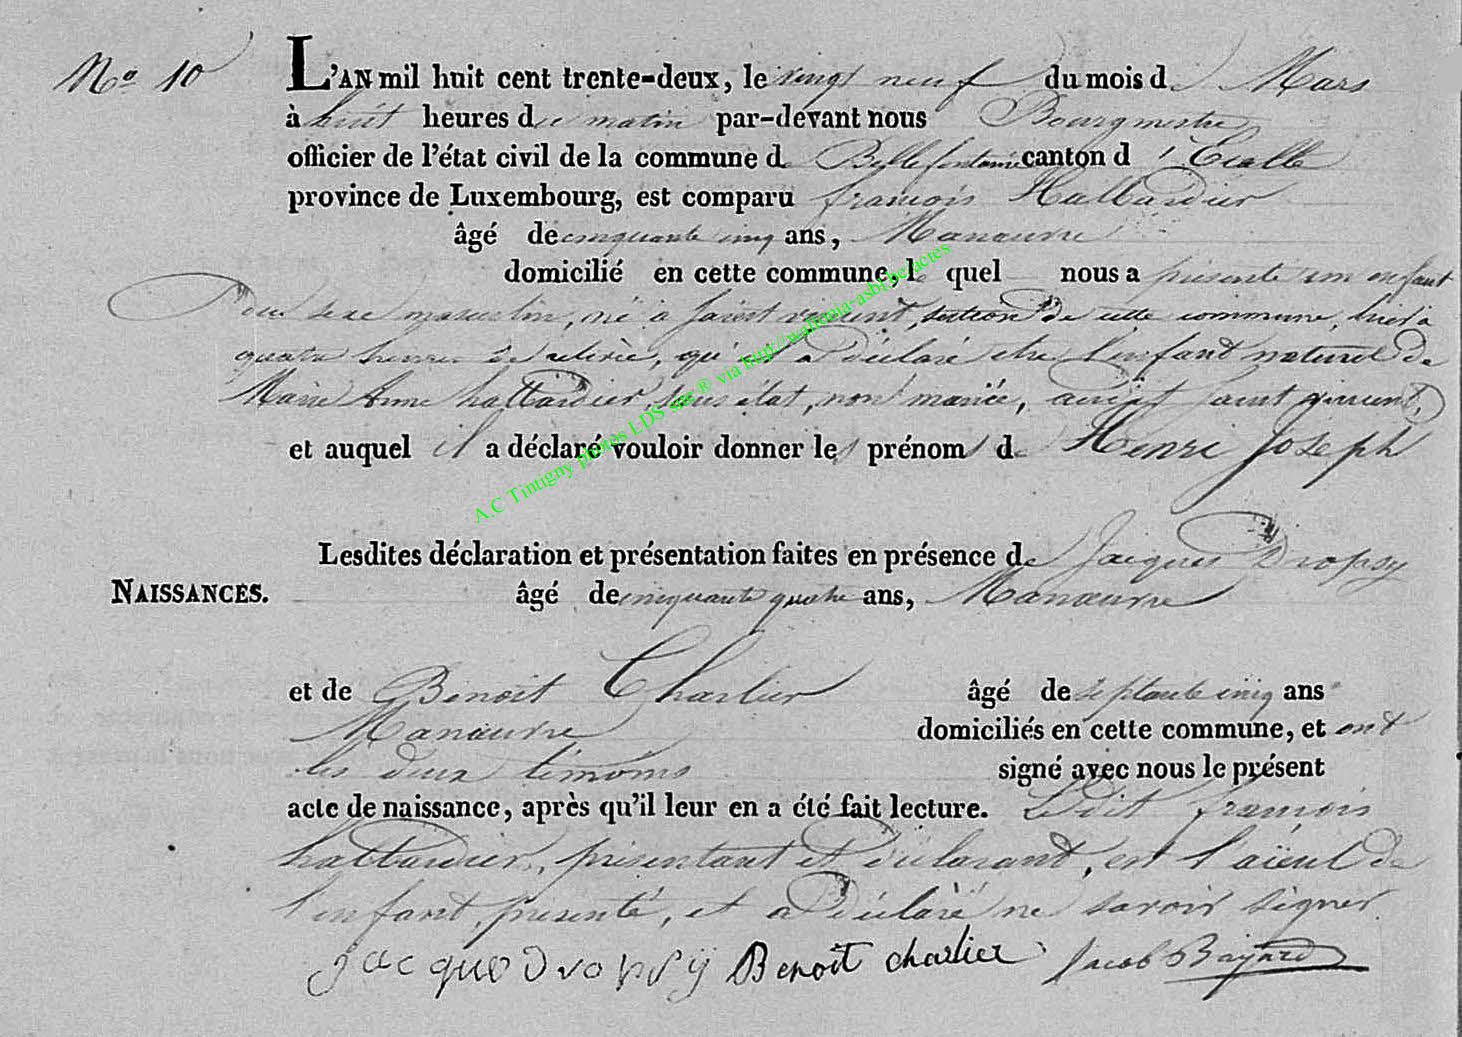 No 10
L'AN mil huit cent trente-deux, le vingt neuf du mois de Mars
à huit heures du matin par-devant nous Bourgmestre
officier de l'état civil de la commune de Bellefontaine canton d'Etalle
province de Luxembourg, est comparu françois Hallardier
âgé de cinquante cinq ans, Manœuvre
domicilié en cette commune, le quel nous a présenté un enfant
Du sexe masculin, né à saint vincent, section de cette commune, hier à
quatre heures de relevée, qu'il a Déclaré être l'enfant naturel de
Marie Anne hallardier, sans état, non mariée, audit saint vincent,
et auquel il a déclaré vouloir donner les prénoms de Henri Joseph
Lesdites déclaration et présentation faites en présence de Jacques Dropsy
NAISSANCES.
âgé de cinquante quatre ans, Manœuvre
et de Benoit Charlier âgé de septante cinq ans
Manœuvre domiciliés en cette commune, et ont
les deux témoins signé avec nous le présent
acte de naissance, après qu'il leur en a été fait lecture. Ledit françois
hallardier, présentant et Déclarant, est l'aïeul de
l'enfant, présenté, et a Déclaré ne savoir signer
Jacque Dropsÿ Benoit charlier Jacob Bajard
A.C Tintigny photos LDS sur ® via http://wallonia-asbl.be/actes